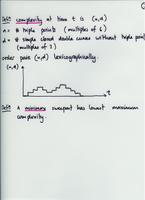 Defn complexity at time t is (n,d)
n = # triple points (multiples of 6)
d = # simple closed double curves without triple points
(multiples of 3)
order pairs (n,d) lexicographically.
(n,d)
t
Defn A minimax sweepout has lowest maximum
complexity.